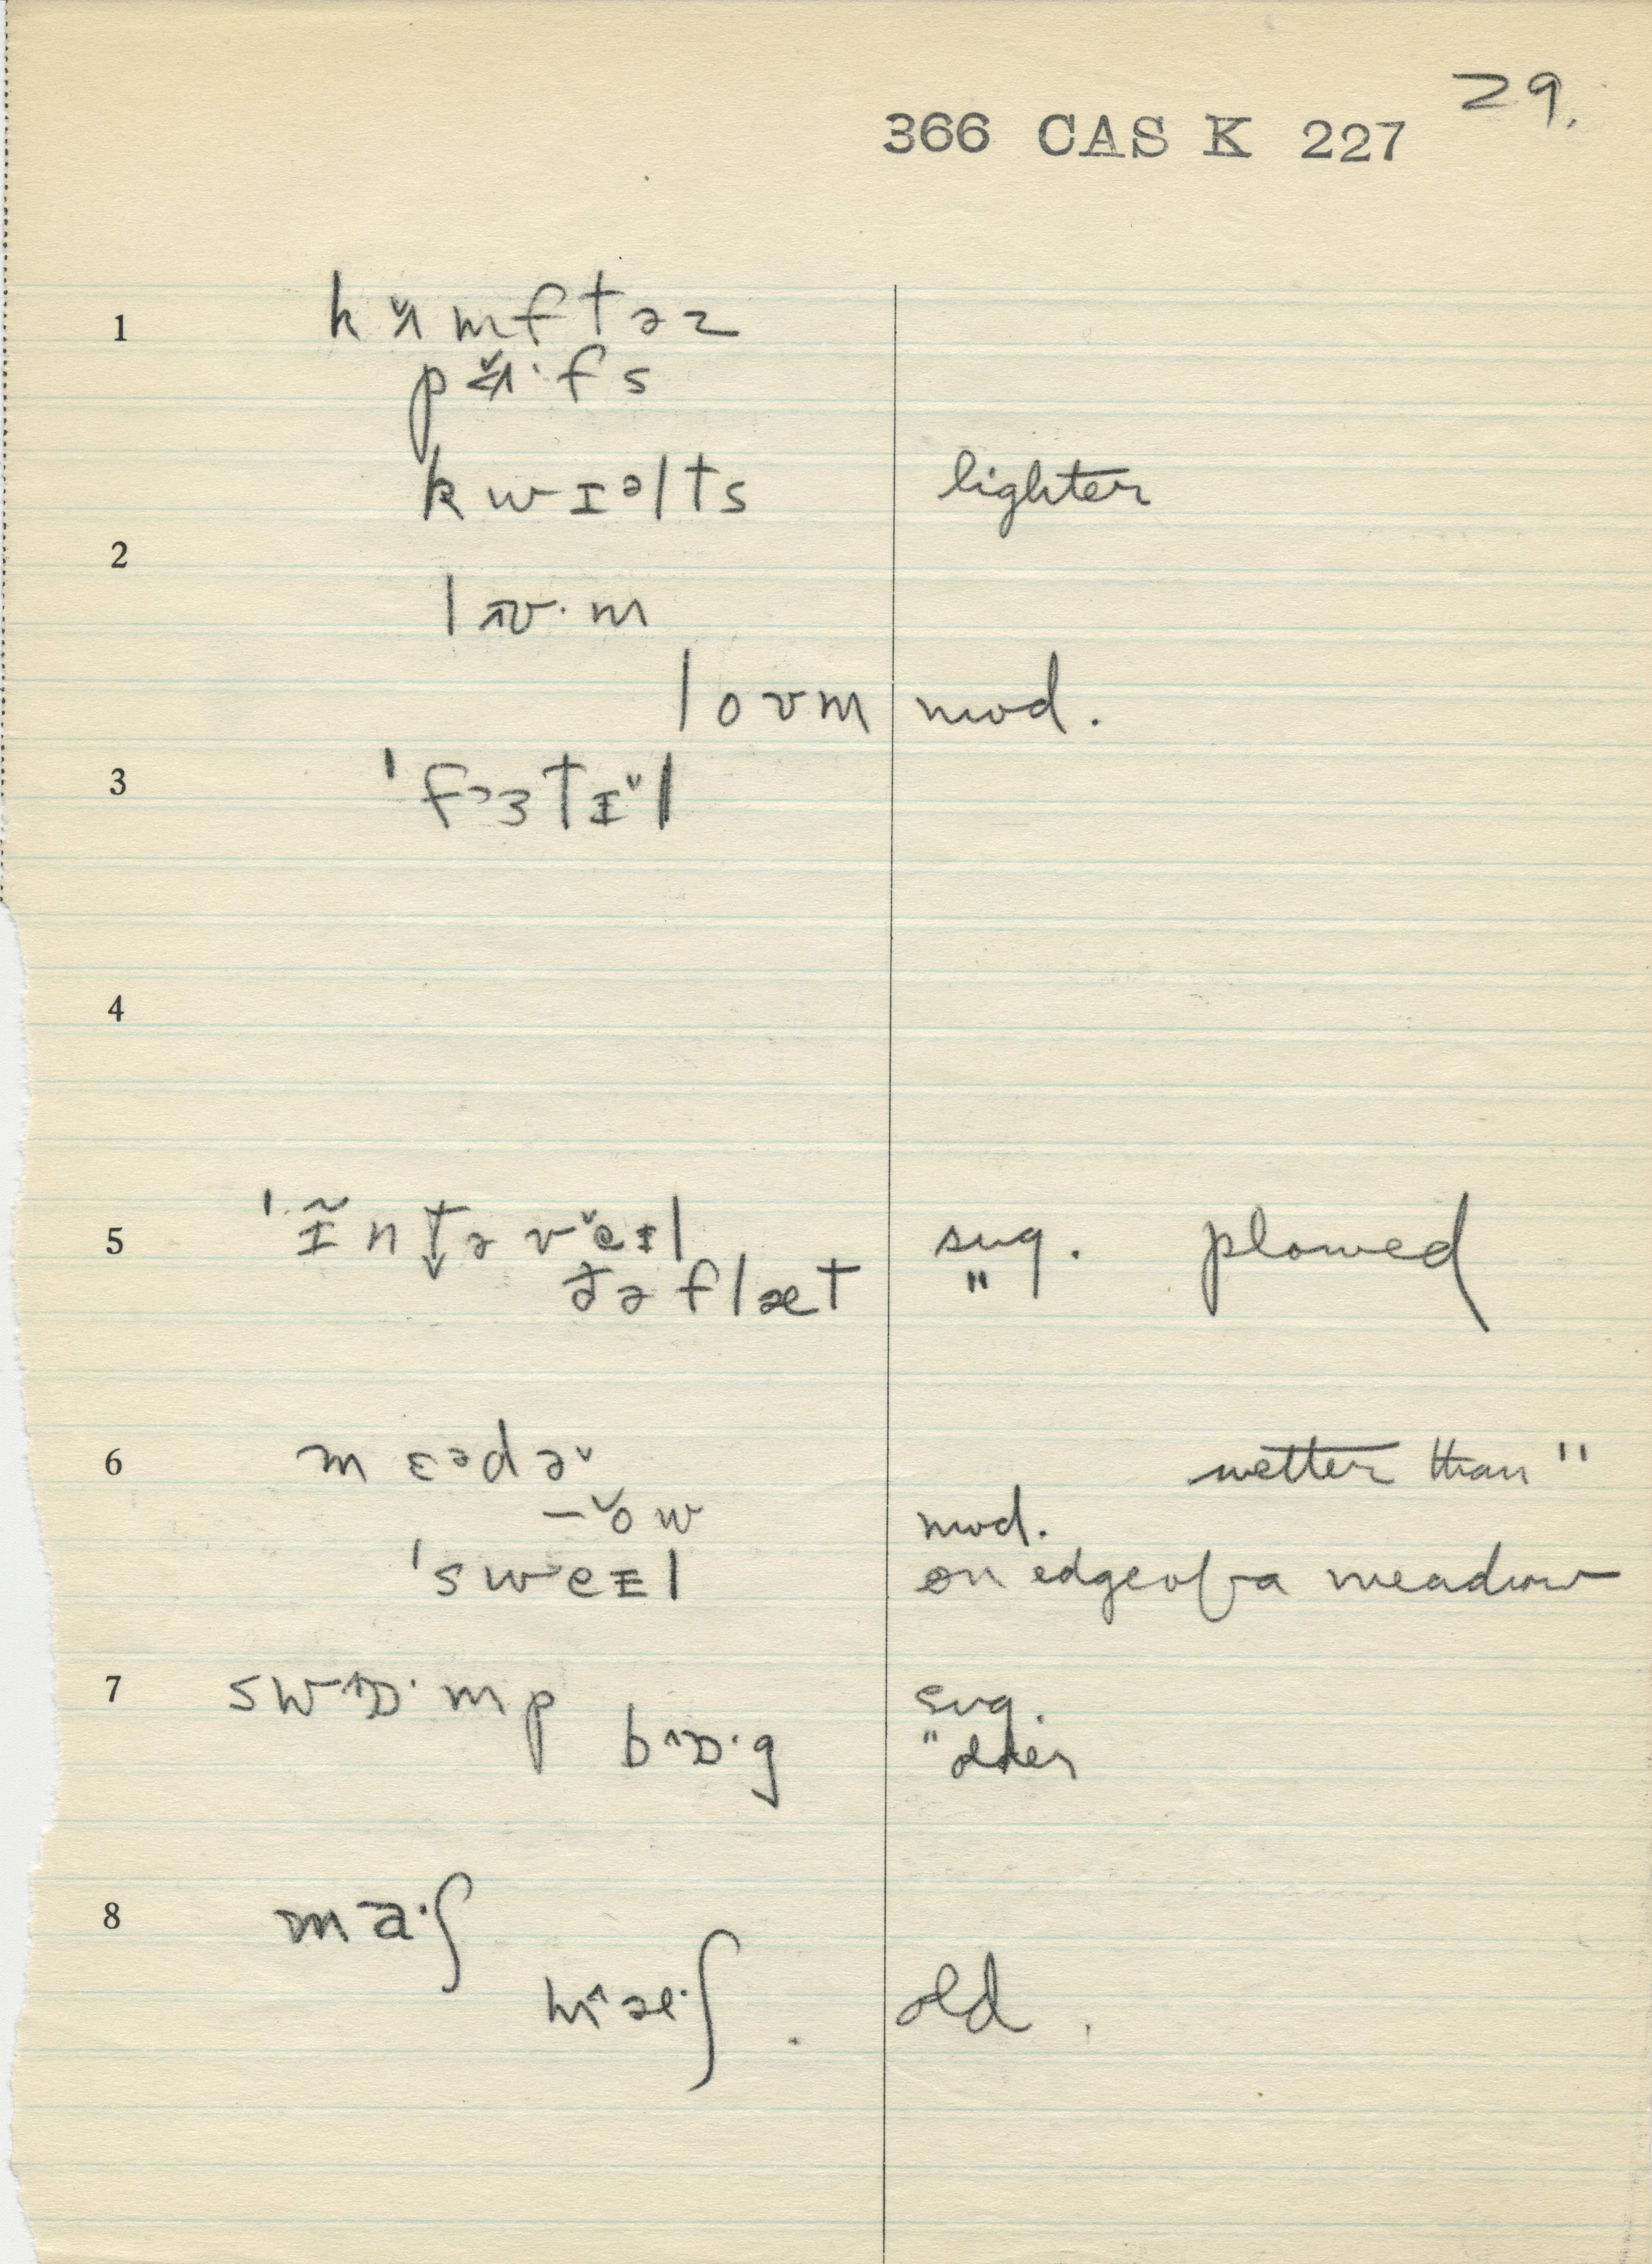 29.
366 CAS K 227
1 kʌ̆mftəz
pʌ̆·fs
kwɪᵊlts lighter
2
lɤ·m
loʊm mod.
3 'fɔ3tɪ̆l
4
5 'ɪ̃ntəvɛ̆ɪl sug. plowed
ðə flæt "
6 mɛᵊdə˅ wetter than "
–˅ow mod.
'sweɪl on edge of a meadow
7 swɒ·mp sug.
bɒ·g " older
8 ma·ʃ
mæ·ʃ . old .